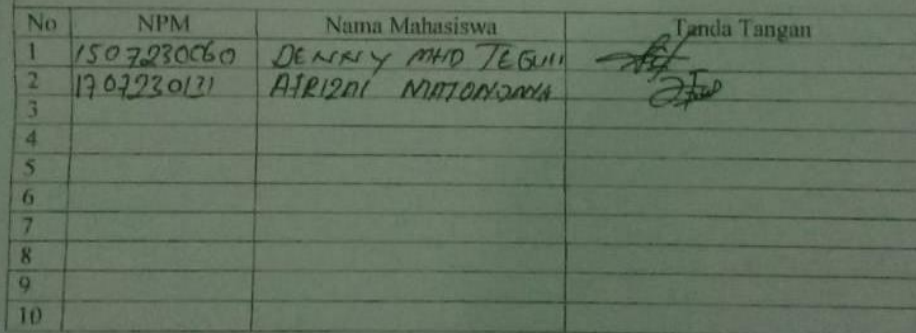 No NPM Nama Mahasiswa Tanda Tangan
1 1507230060 DENNY MHD TEGUH
2 1707230131 AFRIZAL
3
4
5
6
7
8
9
10